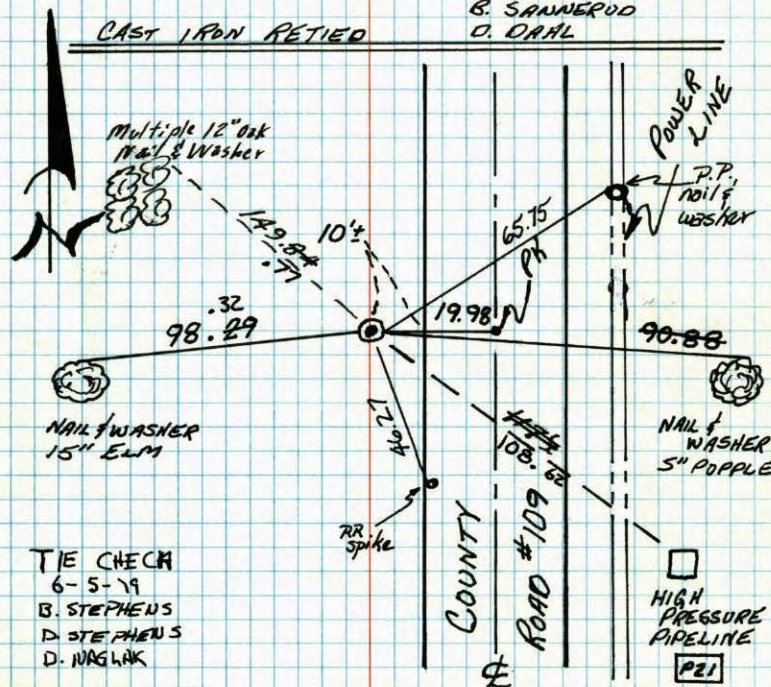 B. SANNERUD
CAST IRON RETIED
D. DAHL
Multiple 12" oak
Nail & Washer
POWER
LINE
P.P.
nail &
washer
149.84
.77
10'±
65.75
PK
.32
98.29
19.98
90.88
NAIL & WASHER
15" ELM
46.27
108.62
NAIL &
WASHER
5" POPPLE
RR
spike
COUNTY
ROAD #109
TIE CHECK
6-5-79
B. STEPHENS
D. STEPHENS
HIGH
PRESSURE
PIPELINE
P21
℄